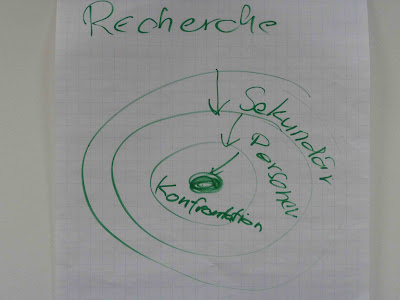 Recherche
Sekundär
Personen
Konfrontation